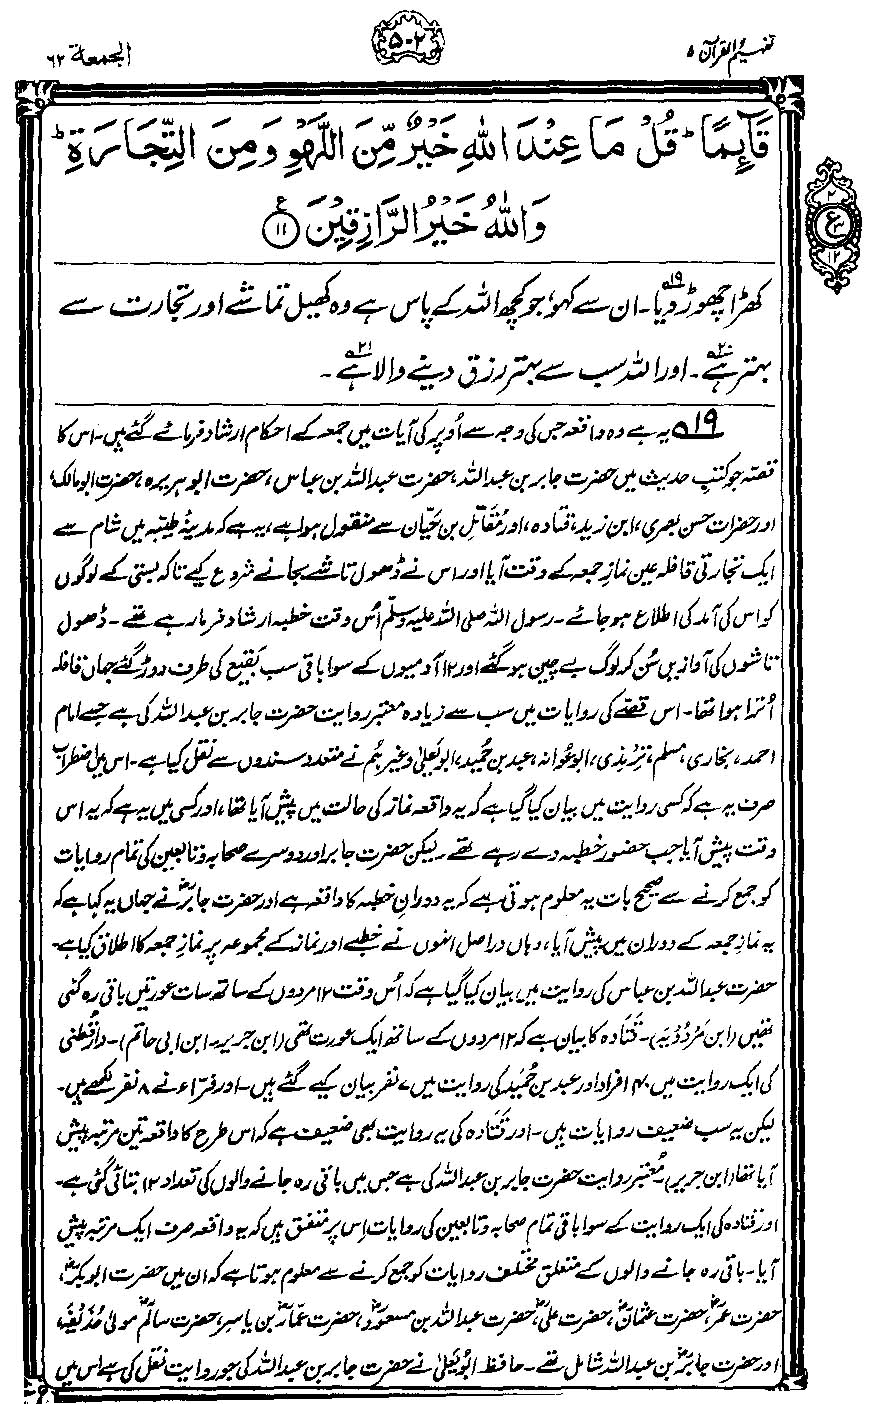 تفہیم القرآن ۵
۵۰۲
الجمعۃ ۶۲
قَآىِٕمًا ؕ قُلْ مَا عِنْدَ اللّٰهِ خَيْرٌ مِّنَ اللَّهْوِ وَمِنَ التِّجَارَةِ ؕ
وَاللّٰهُ خَيْرُ الرَّازِقِيْنَ ۝۱۱ ع
۲
ع
۳
۱۲
کھڑا چھوڑ دیا۱۹۔ ان سے کہو، جو کچھ اللہ کے پاس ہے وہ کھیل تماشے اور تجارت سے
بہتر ہے۲۰۔ اور اللہ سب سے بہتر رزق دینے والا ہے۲۱۔
۱۹؎ یہ ہے وہ واقعہ جس کی وجہ سے اُوپر کی آیات میں جمعہ کے احکام ارشاد فرمائے گئے ہیں۔ اس کا
قصّہ جو کتبِ حدیث میں حضرت جابر بن عبداللہ، حضرت عبداللہ بن عباس، حضرت ابو ہریرہ، حضرت ابو مالک،
اور حضرات حسن بصری، ابن زید، قتادہ، اور مُقاتل بن حَیّان سے منقول ہوا ہے، یہ ہے کہ مدینۂ طیّبہ میں شام سے
ایک تجارتی قافلہ عین نمازِ جمعہ کے وقت آیا اور اس نے ڈھول تاشے بجانے شروع کیے تاکہ بستی کے لوگوں
کو اس کی آمد کی اطلاع ہو جائے۔ رسول اللہ صلی اللہ علیہ وسلم اُس وقت خطبہ ارشاد فرما رہے تھے۔ ڈھول
تاشوں کی آوازیں سُن کر لوگ بے چین ہو گئے اور ۱۲ آدمیوں کے سوا باقی سب بَقیع کی طرف دوڑ گئے جہاں قافلہ
اُترا ہوا تھا۔ اس قصّے کی روایات میں سب سے زیادہ معتبر روایت حضرت جابر بن عبداللہ کی ہے جسے امام
احمد، بخاری، مسلم، ترمذی، ابو عَوانہ، عبد بن حُمید، ابو یَعلیٰ وغیرہم نے متعدد سندوں سے نقل کیا ہے۔ اس میں اضطراب
صرف یہ ہے کہ کسی روایت میں بیان کیا گیا ہے کہ یہ واقعہ نماز کی حالت میں پیش آیا تھا، اور کسی میں یہ ہے کہ یہ اس
وقت پیش آیا جب حضور خطبہ دے رہے تھے۔ لیکن حضرت جابر اور دوسرے صحابہ و تابعین کی تمام روایات
کو جمع کرنے سے صحیح بات یہ معلوم ہوتی ہے کہ یہ دورانِ خطبہ کا واقعہ ہے اور حضرت جابرؓ نے جہاں یہ کہا ہے کہ
یہ نمازِ جمعہ کے دوران میں پیش آیا، وہاں دراصل انہوں نے خطبے اور نماز کے مجموعہ پر نمازِ جمعہ کا اطلاق کیا ہے۔
حضرت عبداللہ بن عباس کی روایت میں بیان کیا گیا ہے کہ اُس وقت ۱۲ مردوں کے ساتھ سات عورتیں باقی رہ گئی
تھیں (ابن مَردُوْیَہ)۔ قتادہ کا بیان ہے کہ ۱۲ مردوں کے ساتھ ایک عورت تھی (ابن جریر۔ ابن ابی حاتم)۔ دارقُطنی
کی ایک روایت میں ۴۰ افراد اور عبد بن حُمید کی روایت میں ۷ نفر بیان کیے گئے ہیں۔ اور فرّاء نے ۸ نفر لکھے ہیں۔
لیکن یہ سب ضعیف روایات ہیں۔ اور قتادہ کی یہ روایت بھی ضعیف ہے کہ اس طرح کا واقعہ تین مرتبہ پیش
آیا تھا (ابن جریر)۔ معتبر روایت حضرت جابر بن عبداللہ کی ہے جس میں باقی رہ جانے والوں کی تعداد ۱۲ بتائی گئی ہے۔
اور قتادہ کی ایک روایت کے سوا باقی تمام صحابہ و تابعین کی روایات اِس پر متفق ہیں کہ یہ واقعہ صرف ایک مرتبہ پیش
آیا۔ باقی رہ جانے والوں کے متعلق مختلف روایات کو جمع کرنے سے معلوم ہوتا ہے کہ ان میں حضرت ابوبکرؓ،
حضرت عمرؓ، حضرت عثمانؓ، حضرت علیؓ، حضرت عبداللہ بن مسعودؓ، حضرت عمّارؓ بن یاسر، حضرت سالمؓ مولیٰ حُذَیفہ،
اور حضرت جابرؓ بن عبداللہ شامل تھے۔ حافظ ابو یَعلیٰ نے حضرت جابر بن عبداللہ کی جو روایت نقل کی ہے اس میں